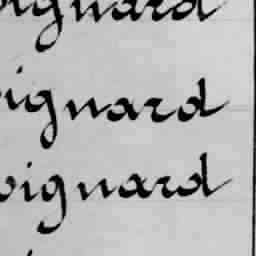 oignard
oignard
oignard